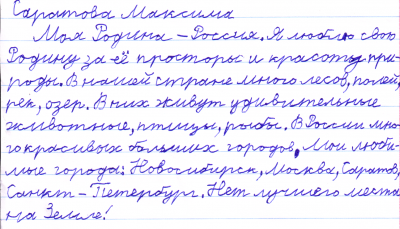 Саратова Максима
Моя Родина – Россия. Я люблю свою
Родину за её просторы и красоту при-
роды. В нашей стране много лесов, полей,
рек, озер. В них живут удивительные
животные, птицы, рыбы. В России мно-
го красивых больших городов. Мои люби-
мые города: Новосибирск, Москва, Саратов,
Санкт – Петербург. Нет лучшего места
на Земле!